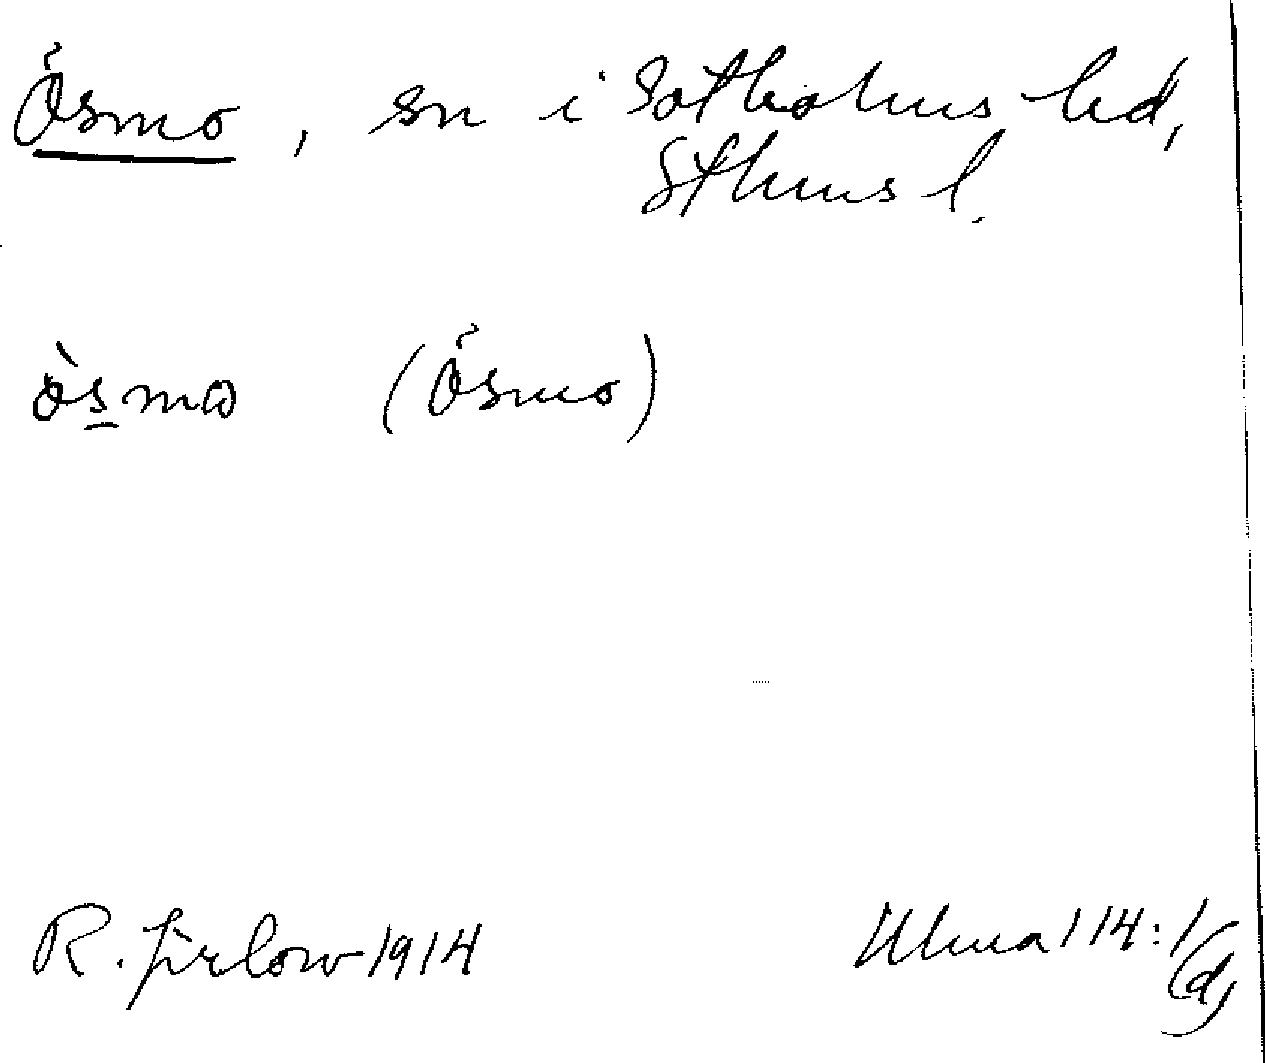 Ösmo, sn i Sotholms hd,
Sthms l.
ò̀smo (Ösmo)
R. Jirlow 1914
Ulma 114:1
(d)